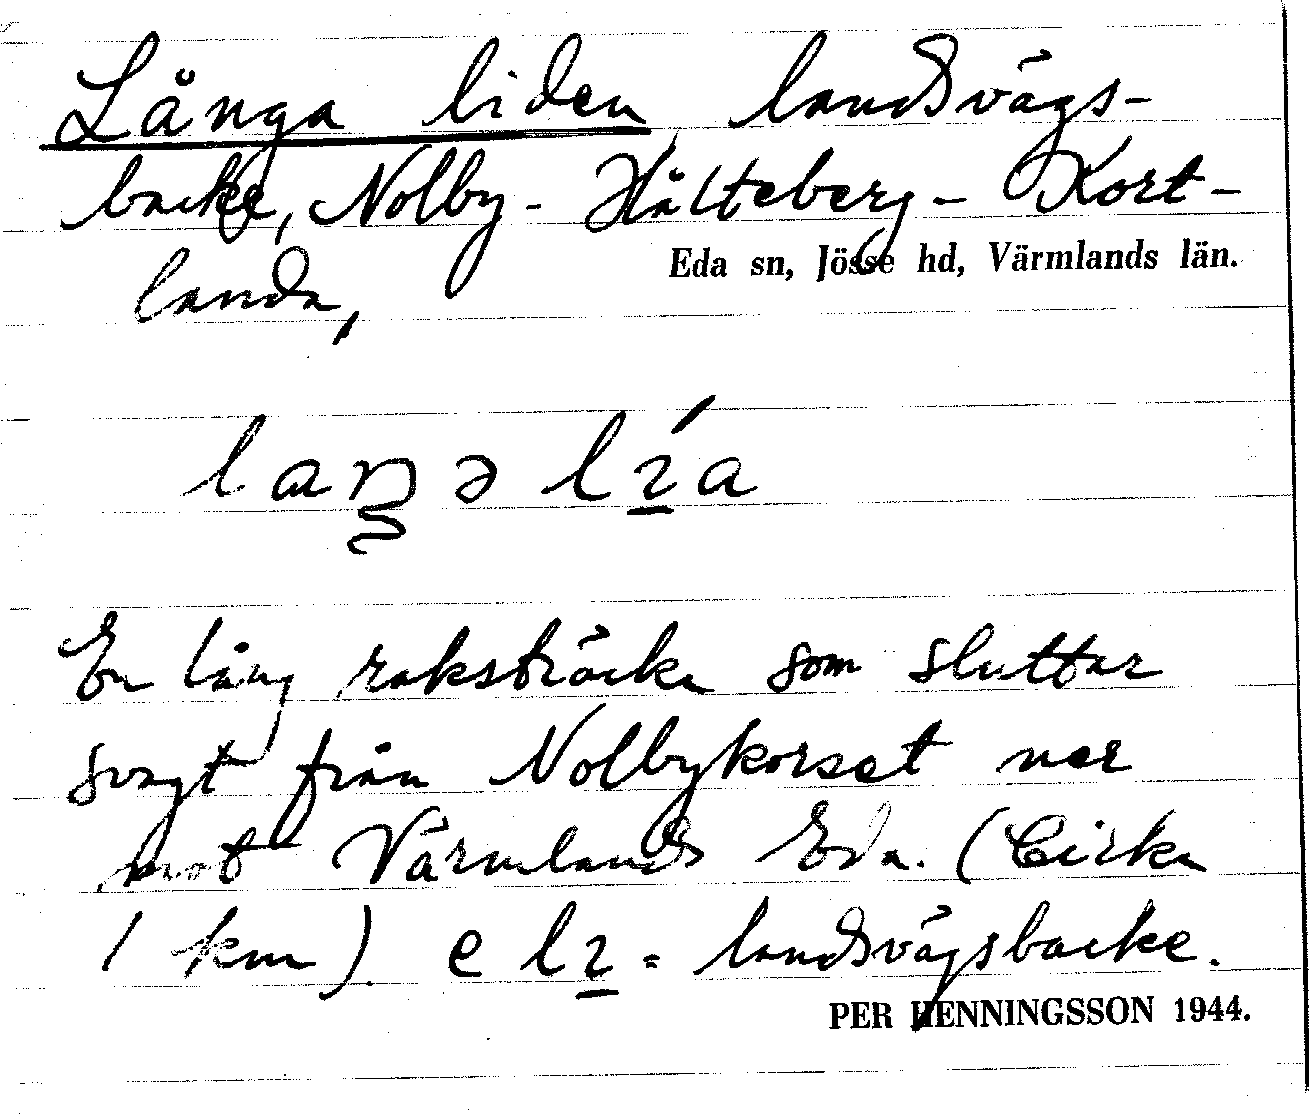 Långa liden landsvägs-
backe, Nolby - Hålteberg - Kort-
landa,
Eda sn, Jösse hd, Värmlands län.
laŋə lı̲́a
En lång raksträcka som sluttar
svagt från Nolbykorset ner
mot Värmlands Eda. (Cirka
1 km). e lı̲ = landsvägsbacke.
PER HENNINGSSON 1944.